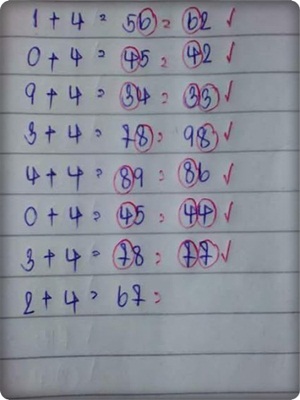 1 + 4 = 56 = 62 ✓
0 + 4 = 45 = 42 ✓
9 + 4 = 34 = 33 ✓
3 + 4 = 78 = 98 ✓
4 + 4 = 89 = 86 ✓
0 + 4 = 45 = 44 ✓
3 + 4 = 78 = 77 ✓
2 + 4 = 67 =